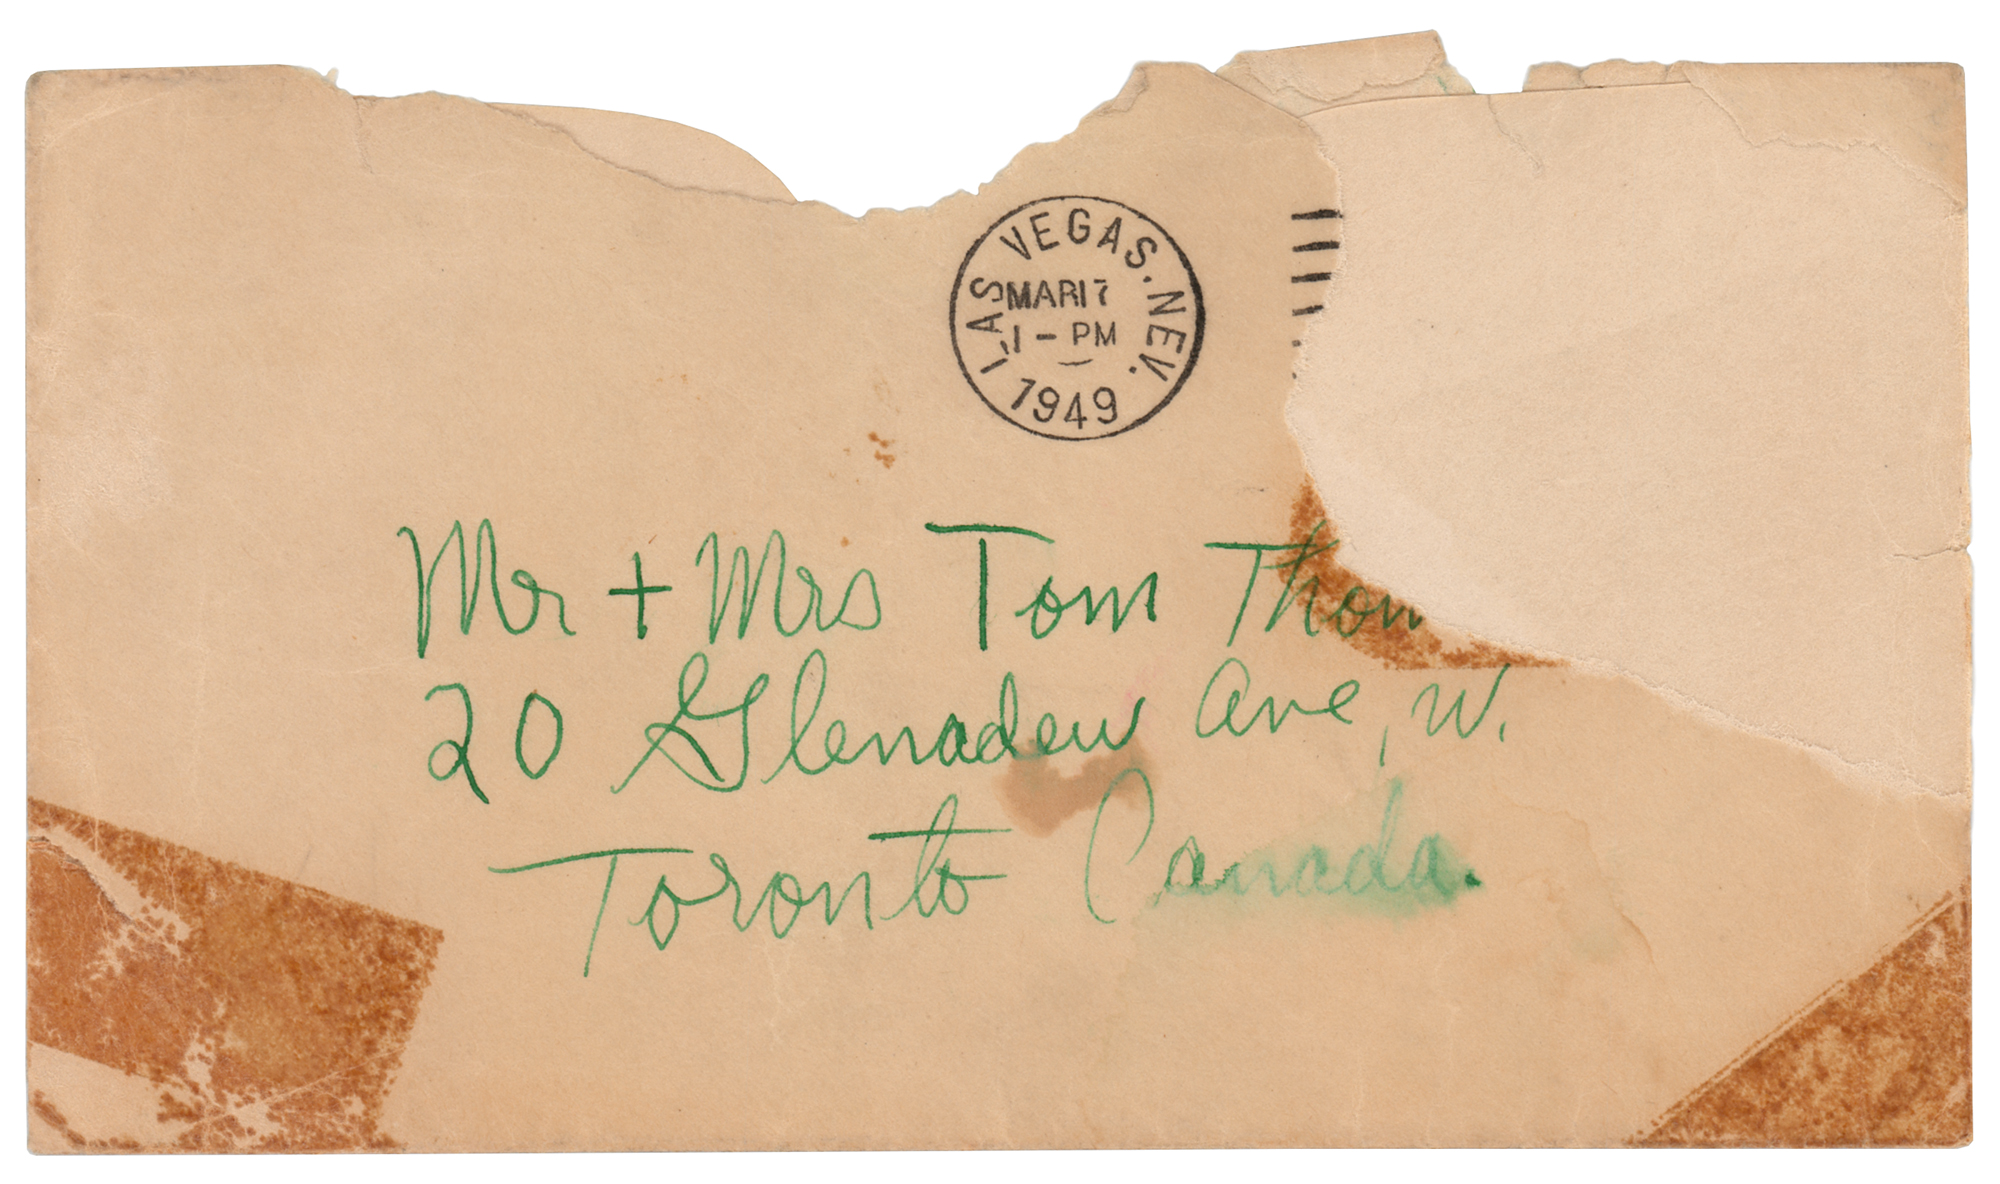 LAS VEGAS. NEV.
MAR 17
1 - PM
1949
Mr + Mrs Tom
20 Glenadew Ave, W.
Toronto Canada.